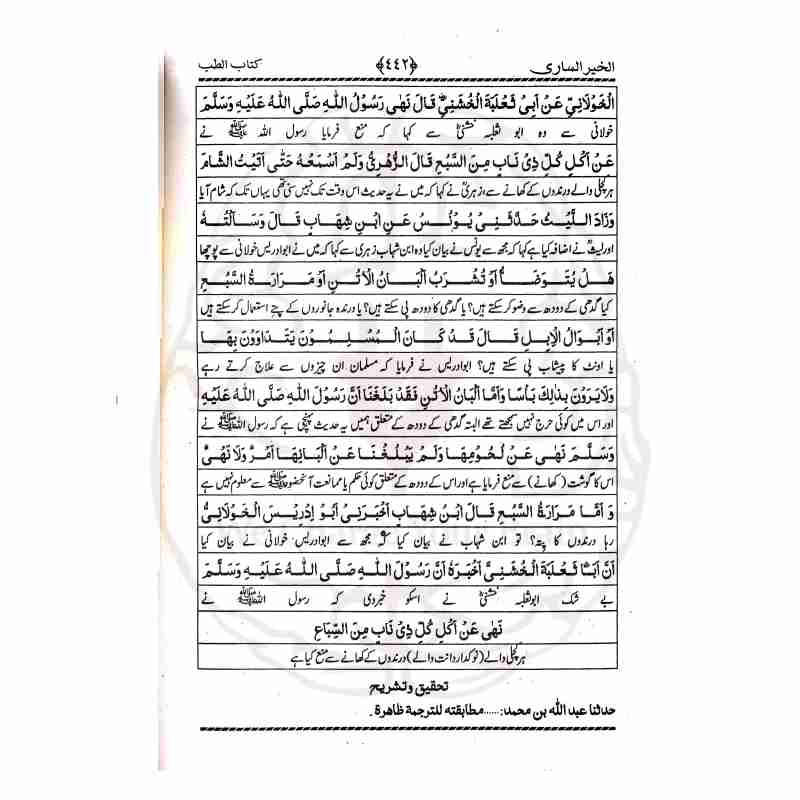 الخیر الساری ﴿٤٤٢﴾ کتاب الطب
الْخَوْلَانِیِّ عَنْ اَبِیْ ثَعْلَبَةَ الْخُشَنِیِّ قَالَ نَهٰی رَسُوْلُ اللهِ صَلَّی اللهُ عَلَیْهِ وَسَلَّمَ
خولانی سے وہ ابو ثعلبہ خشنیؓ سے کہا کہ منع فرمایا رسول اللہ ﷺ نے
عَنْ اَکْلِ کُلِّ ذِیْ نَابٍ مِنَ السَّبُعِ قَالَ الزُّهْرِیُّ وَلَمْ اَسْمَعْهُ حَتّٰی اَتَیْتُ الشَّامَ
ہر کچلی والے درندوں کے کھانے سے، زہریؒ نے کہا کہ میں نے یہ حدیث اس وقت تک نہیں سنی تھی یہاں تک کہ شام آیا
وَزَادَ اللَّیْثُ حَدَّثَنِیْ یُوْنُسُ عَنِ ابْنِ شِهَابٍ قَالَ وَسَاَلْتُهُ
اور لیثؒ نے اضافہ کیا ہے کہا کہ مجھ سے یونس نے بیان کیا وہ ابن شہاب زہری سے کہا کہ میں نے ابوادریس خولانی سے پوچھا
هَلْ یُتَوَضَّأُ اَوْ تُشْرَبُ اَلْبَانُ الْاُتُنِ اَوْ مَرَارَةُ السَّبُعِ
کیا گدھی کے دودھ سے وضو کر سکتے ہیں؟ یا گدھی کا دودھ پی سکتے ہیں؟ یا درندہ جانوروں کے پتے استعمال کر سکتے ہیں
اَوْ اَبْوَالُ الْاِبِلِ قَالَ قَدْ کَانَ الْمُسْلِمُوْنَ یَتَدَاوَوْنَ بِهَا
یا اونٹ کا پیشاب پی سکتے ہیں؟ ابوادریس نے فرمایا کہ مسلمان ان چیزوں سے علاج کرتے رہے
وَلَا یَرَوْنَ بِذٰلِكَ بَأْسًا وَاَمَّا اَلْبَانُ الْاُتُنِ فَقَدْ بَلَغَنَا اَنَّ رَسُوْلَ اللهِ صَلَّی اللهُ عَلَیْهِ
اور اس میں کوئی حرج نہیں سمجھتے تھے البتہ گدھی کے دودھ کے متعلق ہمیں یہ حدیث پہنچی ہے کہ رسول اللہ ﷺ نے
وَسَلَّمَ نَهٰی عَنْ لُحُوْمِهَا وَلَمْ یَبْلُغْنَا عَنْ اَلْبَانِهَا اَمْرٌ وَلَا نَهْیٌ
اس کا گوشت (کھانے) سے منع فرمایا ہے اور اس کے دودھ کے متعلق کوئی حکم یا ممانعت آنحضور ﷺ سے معلوم نہیں ہے
وَ اَمَّا مَرَارَةُ السَّبُعِ قَالَ ابْنُ شِهَابٍ اَخْبَرَنِیْ اَبُوْ اِدْرِیْسَ الْخَوْلَانِیُّ
رہا درندوں کا پتہ؟ تو ابن شہاب نے بیان کیا کہ مجھ سے ابوادریس خولانی نے بیان کیا
اَنَّ اَبَا ثَعْلَبَةَ الْخُشَنِیَّ اَخْبَرَهُ اَنَّ رَسُوْلَ اللهِ صَلَّی اللهُ عَلَیْهِ وَسَلَّمَ
بے شک ابوثعلبہ خشنیؓ نے اسکو خبر دی کہ رسول اللہ ﷺ نے
نَهٰی عَنْ اَکْلِ کُلِّ ذِیْ نَابٍ مِنَ السِّبَاعِ
ہر کچلی والے (نوکدار دانت والے) درندوں کے کھانے سے منع کیا ہے
تحقیق وتشریح
حدثنا عبد الله بن محمد:......مطابقته للترجمة ظاهرة.